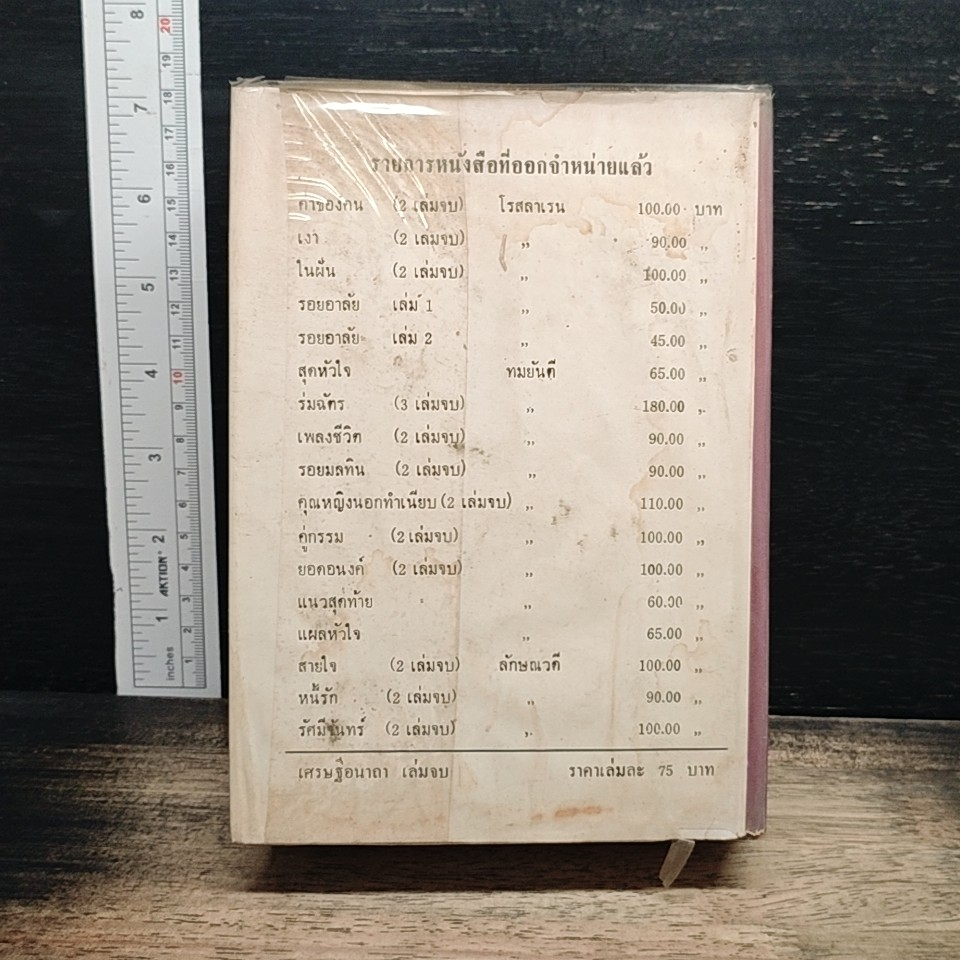 รายการหนังสือที่ออกจำหน่ายแล้ว
ค่าของคน (2 เล่มจบ) โรสลาเรน 100.00 บาท
เงา (2 เล่มจบ) ,, 90.00 ,,
ในฝัน (2 เล่มจบ) ,, 100.00 ,,
รอยอาลัย เล่ม 1 ,, 50.00 ,,
รอยอาลัย เล่ม 2 ,, 45.00 ,,
สุดหัวใจ ทมยันตี 65.00 ,,
ร่มฉัตร (3 เล่มจบ) ,, 180.00 ,,
เพลงชีวิต (2 เล่มจบ) ,, 90.00 ,,
รอยมลทิน (2 เล่มจบ) ,, 90.00 ,,
คุณหญิงนอกทำเนียบ (2 เล่มจบ) ,, 110.00 ,,
คู่กรรม (2 เล่มจบ) ,, 100.00 ,,
ยอดอนงค์ (2 เล่มจบ) ,, 100.00 ,,
แนวสุดท้าย ,, 60.00 ,,
แผลหัวใจ ,, 65.00 ,,
สายใจ (2 เล่มจบ) ลักษณวดี 100.00 ,,
หนี้รัก (2 เล่มจบ) ,, 90.00 ,,
รัศมีจันทร์ (2 เล่มจบ) ,, 100.00 ,,
เศรษฐีอนาถา เล่มจบ ราคาเล่มละ 75 บาท
8 7 6 5 4 3 2 1
inches
AKTION
20 19 18 17 16 15 14 13 12 11 10 9 8 7 6 5 4 3 2 1